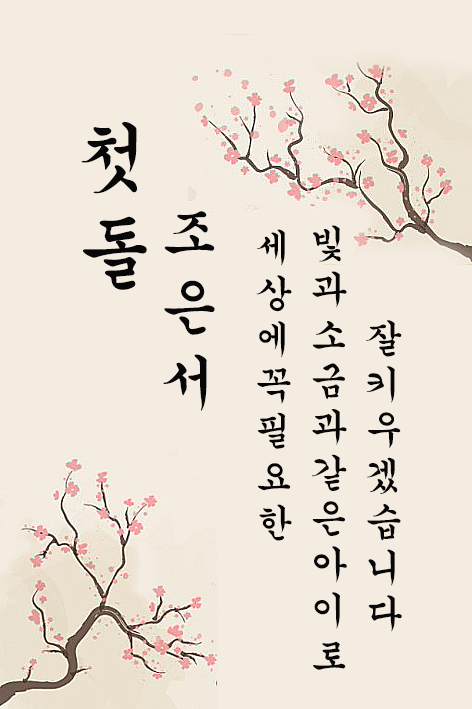 첫돌
조은서
세상에꼭필요한
빛과소금과같은아이로
잘키우겠습니다